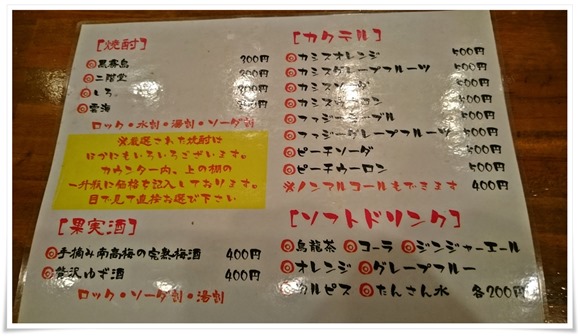 [焼酎]
黒霧島 300円
二階堂 300円
しろ
雲海
ロック・水割・湯割・ソーダ割
※厳選された焼酎は
ほかにもいろいろございます。
カウンター内、上の棚の
一升瓶に価格を記入しております。
目で見て直接お選び下さい
[果実酒]
手摘み南高梅の完熟梅酒 400円
贅沢ゆず酒 400円
ロック・ソーダ割・湯割
[カクテル]
カシスオレンジ 500円
カシスグレープフルーツ 500円
カシス 500円
カシスウーロン 500円
ファジーネーブル 500円
ファジーグレープフルーツ 500円
ピーチソーダ 500円
ピーチウーロン 500円
※ノンアルコールもできます 400円
[ソフトドリンク]
烏龍茶 コーラ ジンジャーエール
オレンジ グレープフルー
カルピス たんさん水 各200円